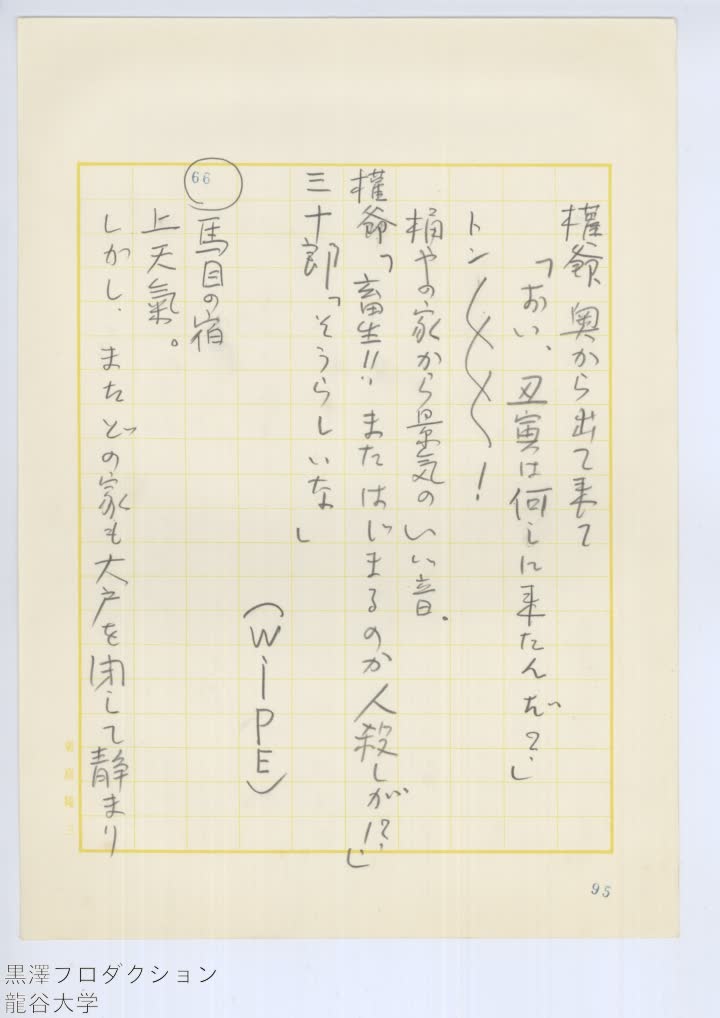 權爺、奥から出て来て
「おい、丑寅は何しに来たんだ?」
トン〳〵〳〵〳〵!
桶やの家から景気のいい音.
權爺「畜生!!またはじまるのか人殺しが!?」
三十郎「そうらしいな」
(WiPE)
66
馬目の宿
上天氣。
しかし、またどの家も大戸を閉して静まり
95
黒澤フロダクション
龍谷大学